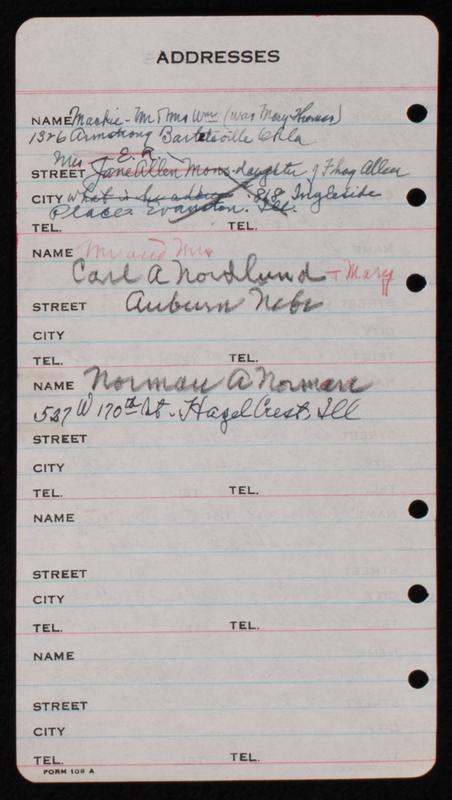 ADDRESSES
NAME Mackie - Mr & Mrs Wm (was Mary Thomas)
1326 Armstrong Bartlesville Okla
Mrs. E. R.
STREET Jane Allen Mons - daughter of Thos Allen
CITY What is her address. 818 Ingleside
Place? Evanston. Ill.
TEL. TEL.
NAME Mr and Mrs
Carl A Nordlund + Mary
STREET Auburn Nebr
CITY
TEL. TEL.
NAME Norman A Norman
537 W 170th St. Hazel Crest, Ill
STREET
CITY
TEL. TEL.
NAME
STREET
CITY
TEL. TEL.
NAME
STREET
CITY
TEL. TEL.
FORM 109 A